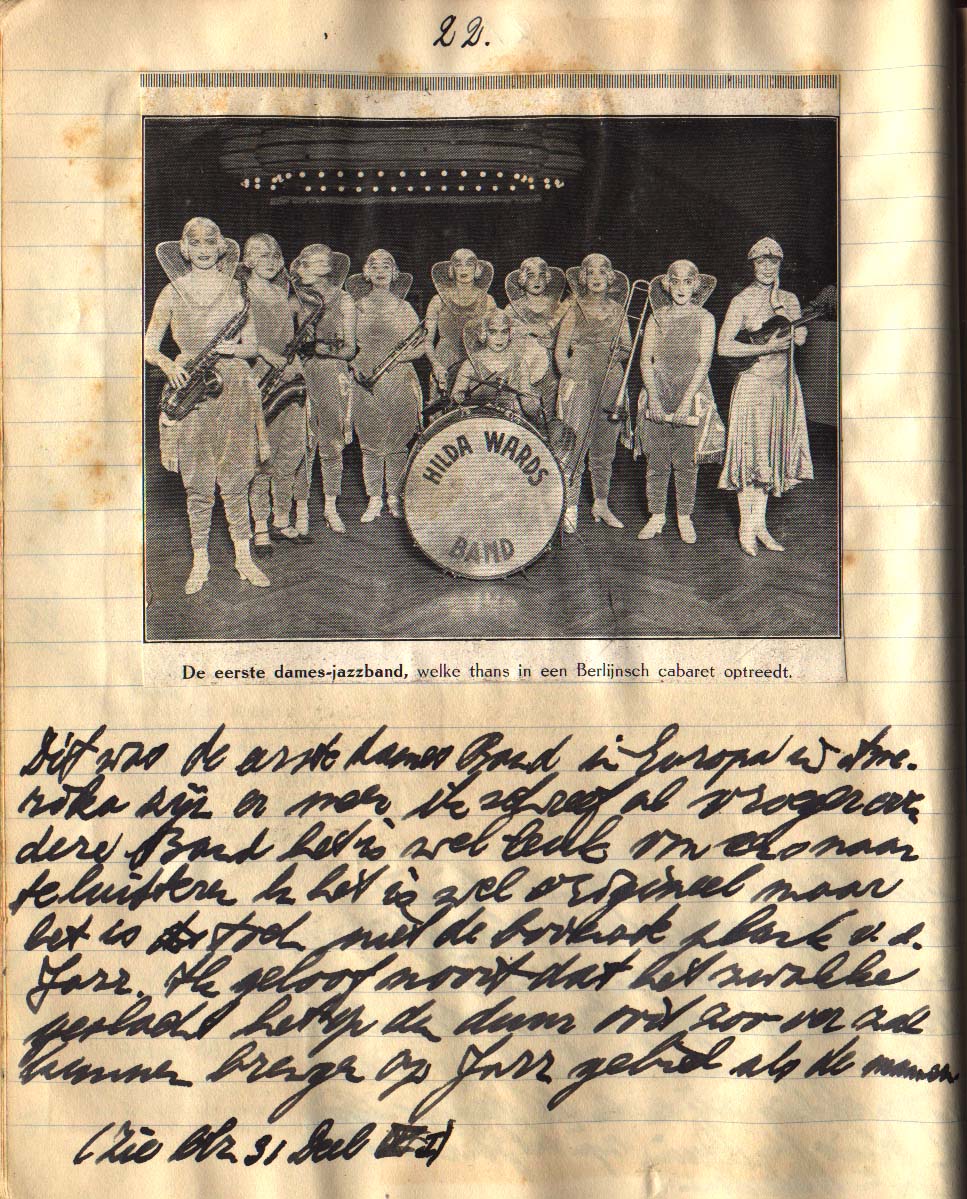 22.
HILDA WARDS
BAND
De eerste dames-jazzband, welke thans in een Berlijnsch cabaret optreedt.
Dit was de eerste dames Band in Europa in Ame-
rika zijn er meer, ik schreef al vroeger over
dere Band het is wel leuk om eens naar
te luisteren en het is wel origineel maar
het is toch niet de bovenste plank v. d.
Jazz. Ik geloof nooit dat het zwakke
geslacht het op den duur ooit zoo ver zal
kunnen brengen op Jazz gebied als de mannen
(Zie blz 31 Deel